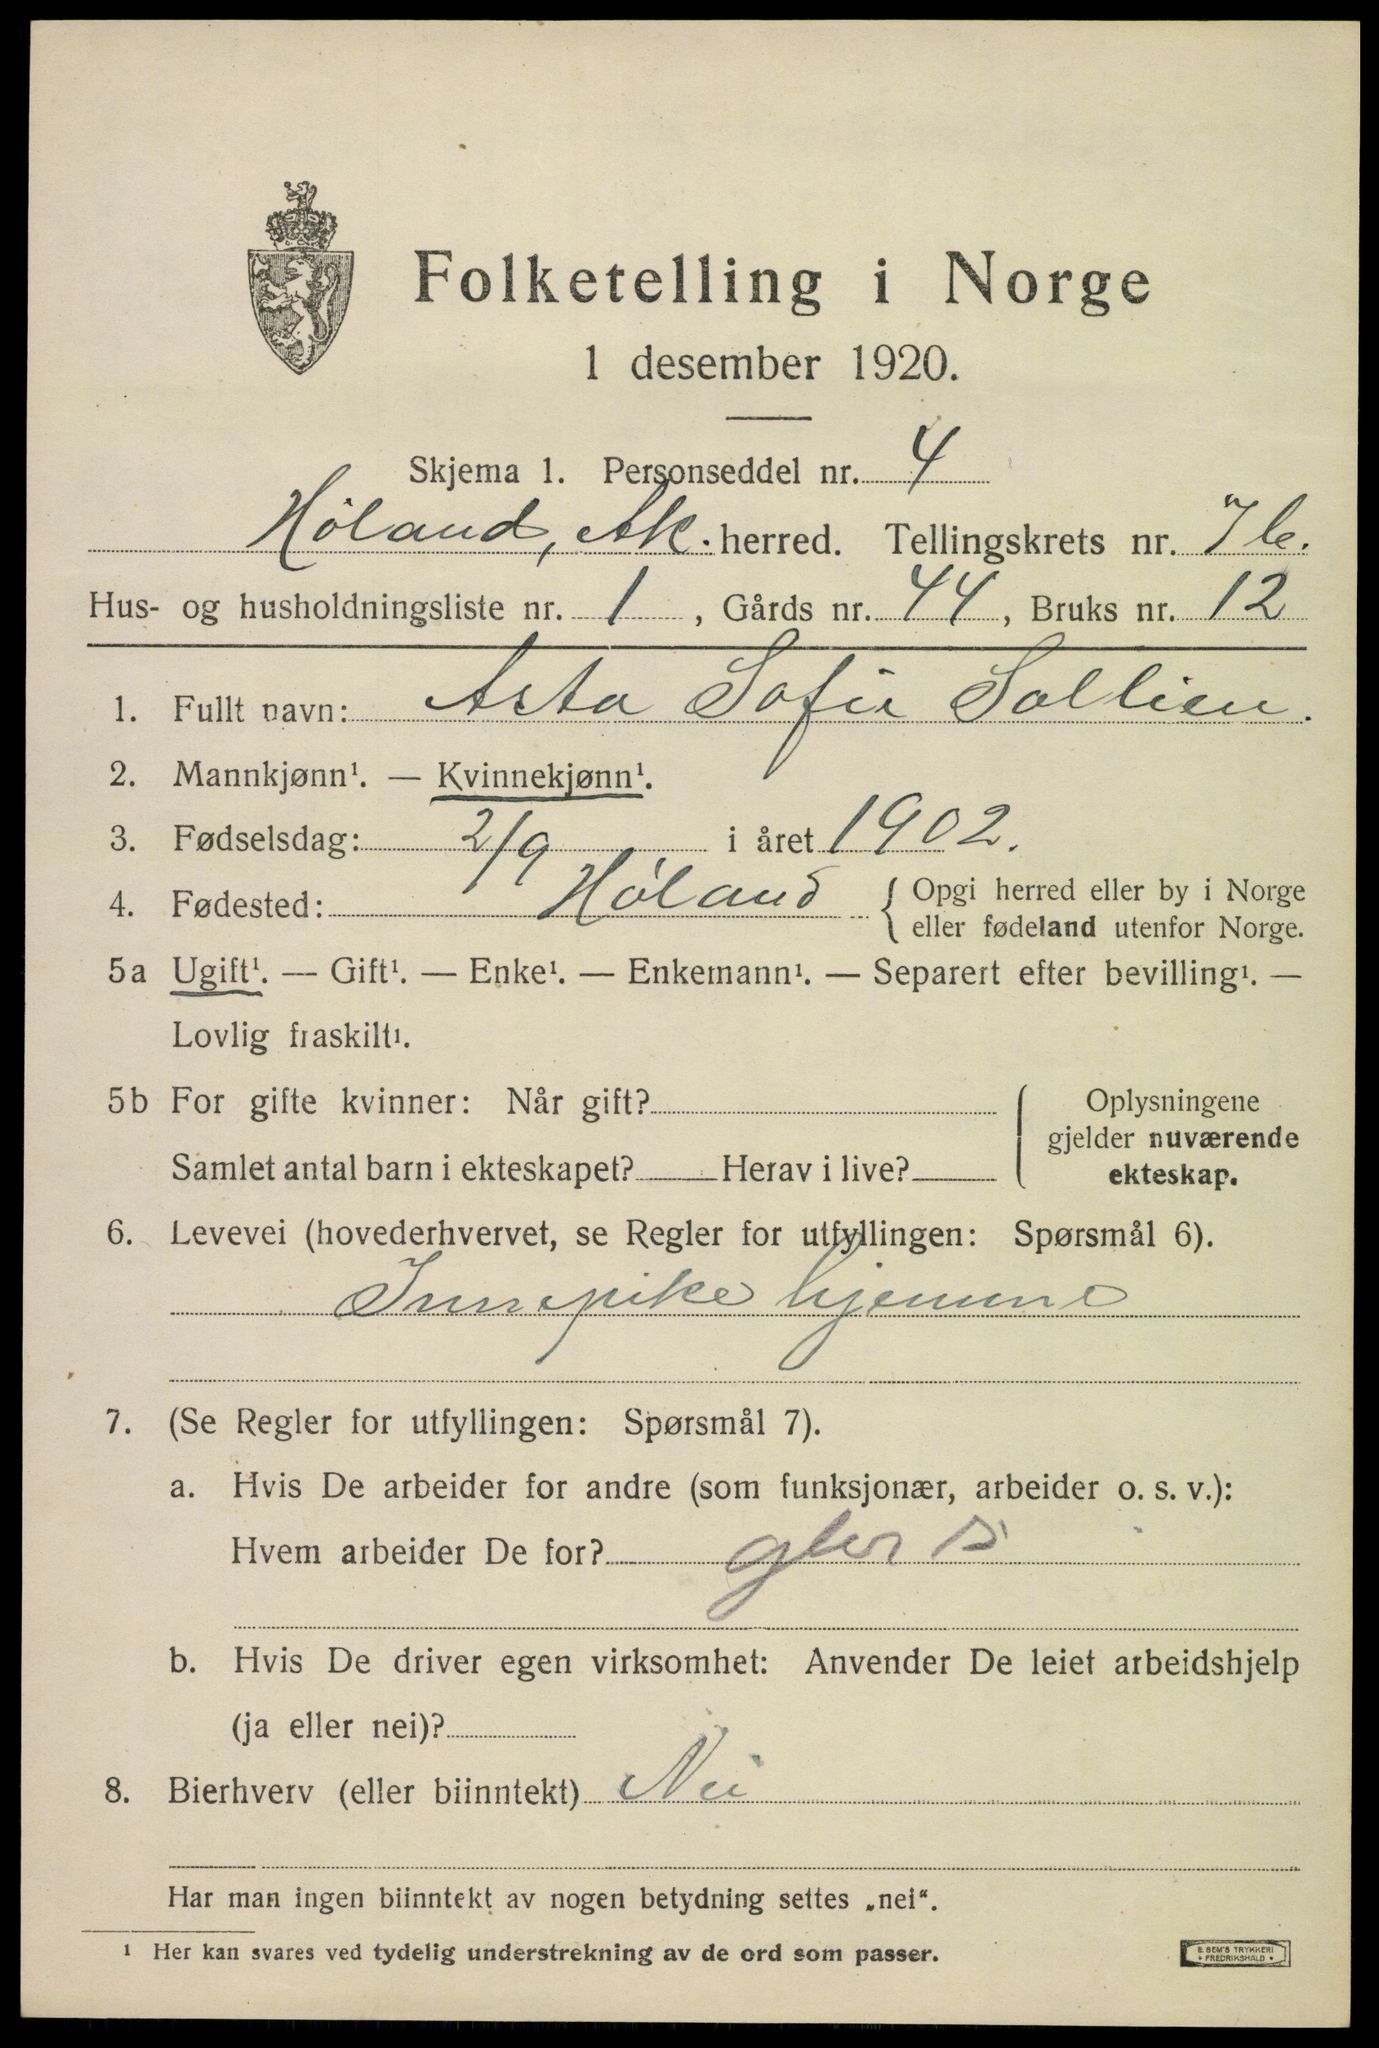 Folketelling i Norge
1 desember 1920.
Skjema 1. Personseddel nr. 4
Høland, Ak. herred. Tellingskrets nr. 7b.
Hus- og husholdningsliste nr. 1, Gårds nr. 44, Bruks nr. 12
1. Fullt navn: Asta Sofie Sollien.
2. Mannkjønn¹. — Kvinnekjønn¹.
3. Fødselsdag: 2/9 i året 1902.
4. Fødested: Høland { Opgi herred eller by i Norge
eller fødeland utenfor Norge.
5a Ugift¹. — Gift¹. — Enke¹. — Enkemann¹. — Separert efter bevilling¹. —
Lovlig fraskilt¹.
5b For gifte kvinner: Når gift?
Samlet antal barn i ekteskapet? Herav i live?
Oplysningene
gjelder nuværende
ekteskap.
6. Levevei (hovederhvervet, se Regler for utfyllingen: Spørsmål 6).
Innepike hjemme
7. (Se Regler for utfyllingen: Spørsmål 7).
a. Hvis De arbeider for andre (som funksjonær, arbeider o. s. v.):
Hvem arbeider De for?
b. Hvis De driver egen virksomhet: Anvender De leiet arbeidshjelp
(ja eller nei)?
8. Bierhverv (eller biinntekt) Nei
Har man ingen biinntekt av nogen betydning settes „nei“.
¹ Her kan svares ved tydelig understrekning av de ord som passer.
E. SEM'S TRYKKERI
• FREDRIKSHALD •